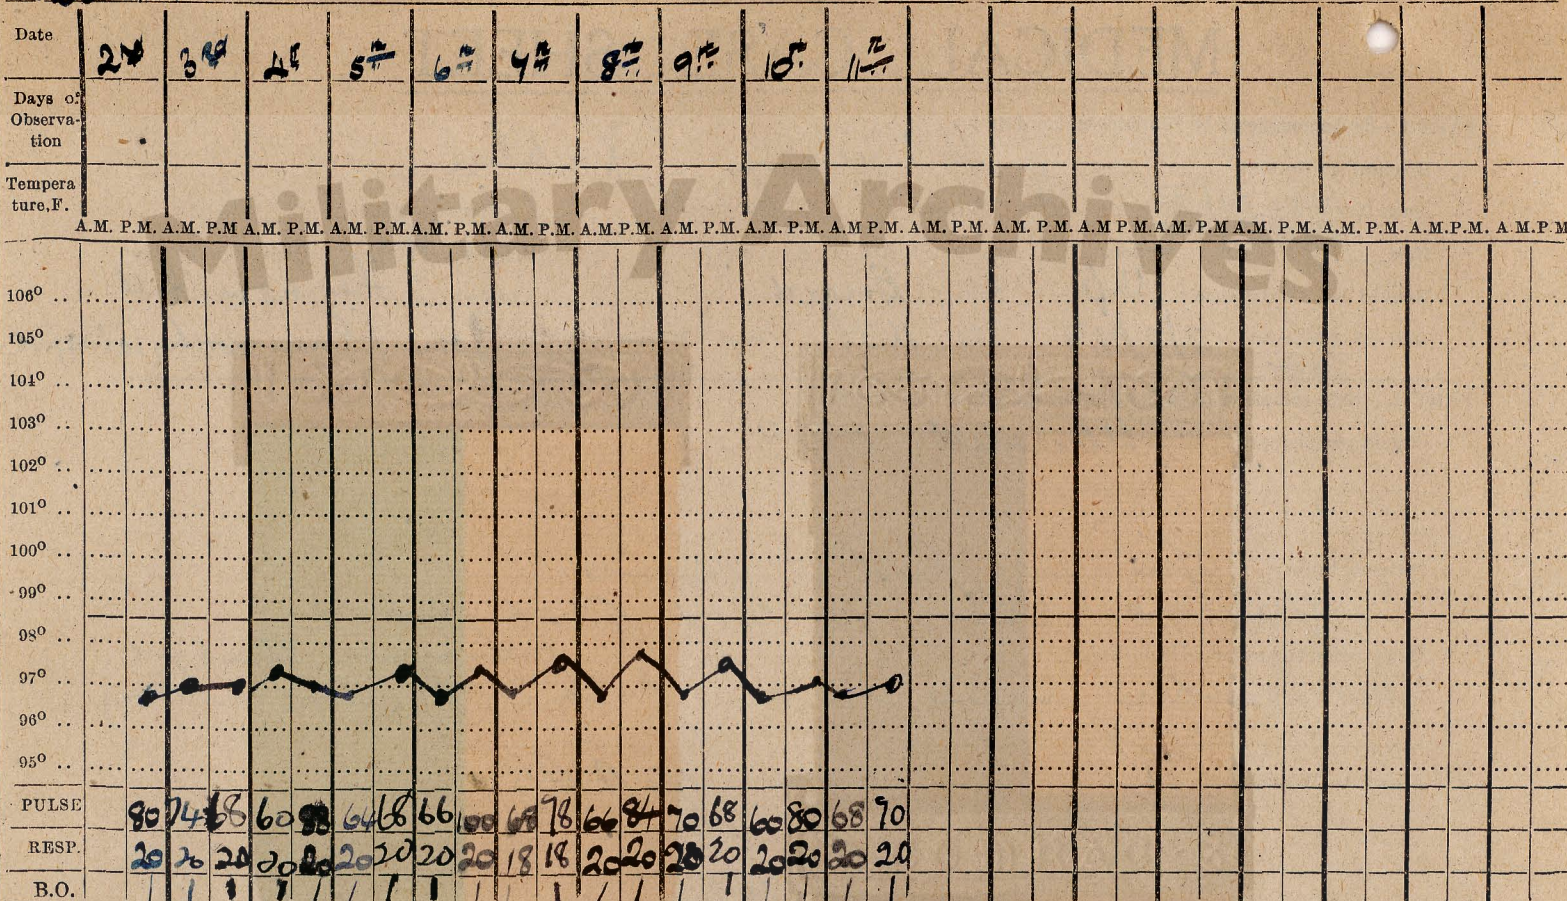 Date 2nd 3rd 4th 5th 6th 7th 8th 9th 10th 11th
Days of
Observa-
tion
Tempera
ture,F.
A.M. P.M. A.M. P.M A.M. P.M. A.M. P.M. A.M. P.M. A.M. P.M. A.M. P.M. A.M. P.M. A.M. P.M. A.M. P.M. A.M. P.M. A.M. P.M. A.M P.M. A.M. P.M A.M. P.M. A.M. P.M. A.M. P.M. A.M. P.M
Military Archives
106° ..
105° ..
104° ..
103° ..
102° ..
101° ..
100° ..
99° ..
98° ..
97° ..
96° ..
95° ..
PULSE 80 74 68 60 64 68 66 100 68 78 66 84 70 68 60 80 68 90
RESP. 20 20 20 20 20 20 20 20 20 18 18 20 20 20 20 20 20 20 20
B.O. 1 1 1 1 1 1 1 1 1 1 1 1 1 1 1 1 1 1 1